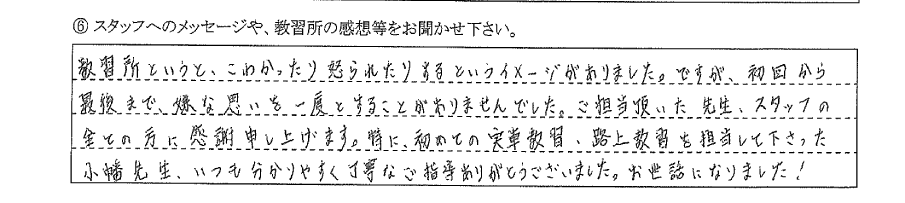 ⑥ スタッフへのメッセージや、教習所の感想等をお聞かせ下さい。
教習所というと、こわかったり怒られたりするというイメージがありました。ですが、初回から
最後まで、嫌な思いを一度とすることがありませんでした。ご担当頂いた先生、スタッフの
全ての方に感謝申し上げます。特に、初めての実車教習、路上教習を担当して下さった
小幡先生、いつも分かりやすく丁寧なご指導ありがとうございました。お世話になりました!